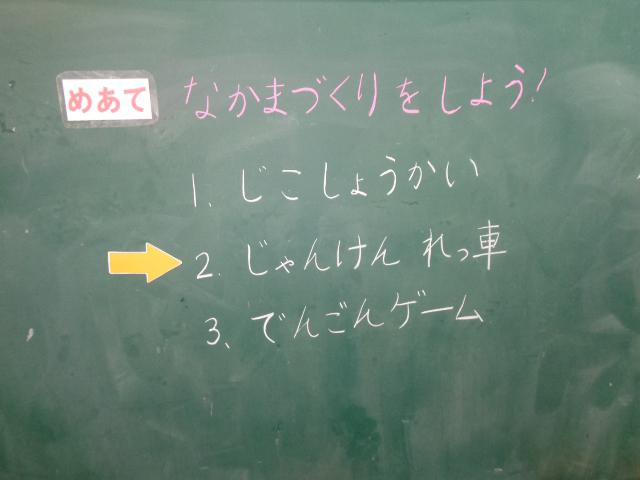 めあて なかまづくりをしよう!
1. じこしょうかい
2. じゃんけん れっ車
3、でんごんゲーム